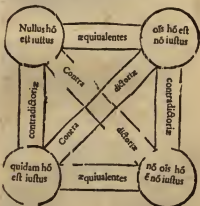 Nullus hō
eſt iuſtus
æquiualentes
oīs hō eſt
nō iuſtus
Contra
dictoriæ
contradictoriæ
contradictoriæ
Contra
dictoriæ
quidam hō
eſt iuſtus
æquiualentes
nō oīs hō
ē nō iuſtus